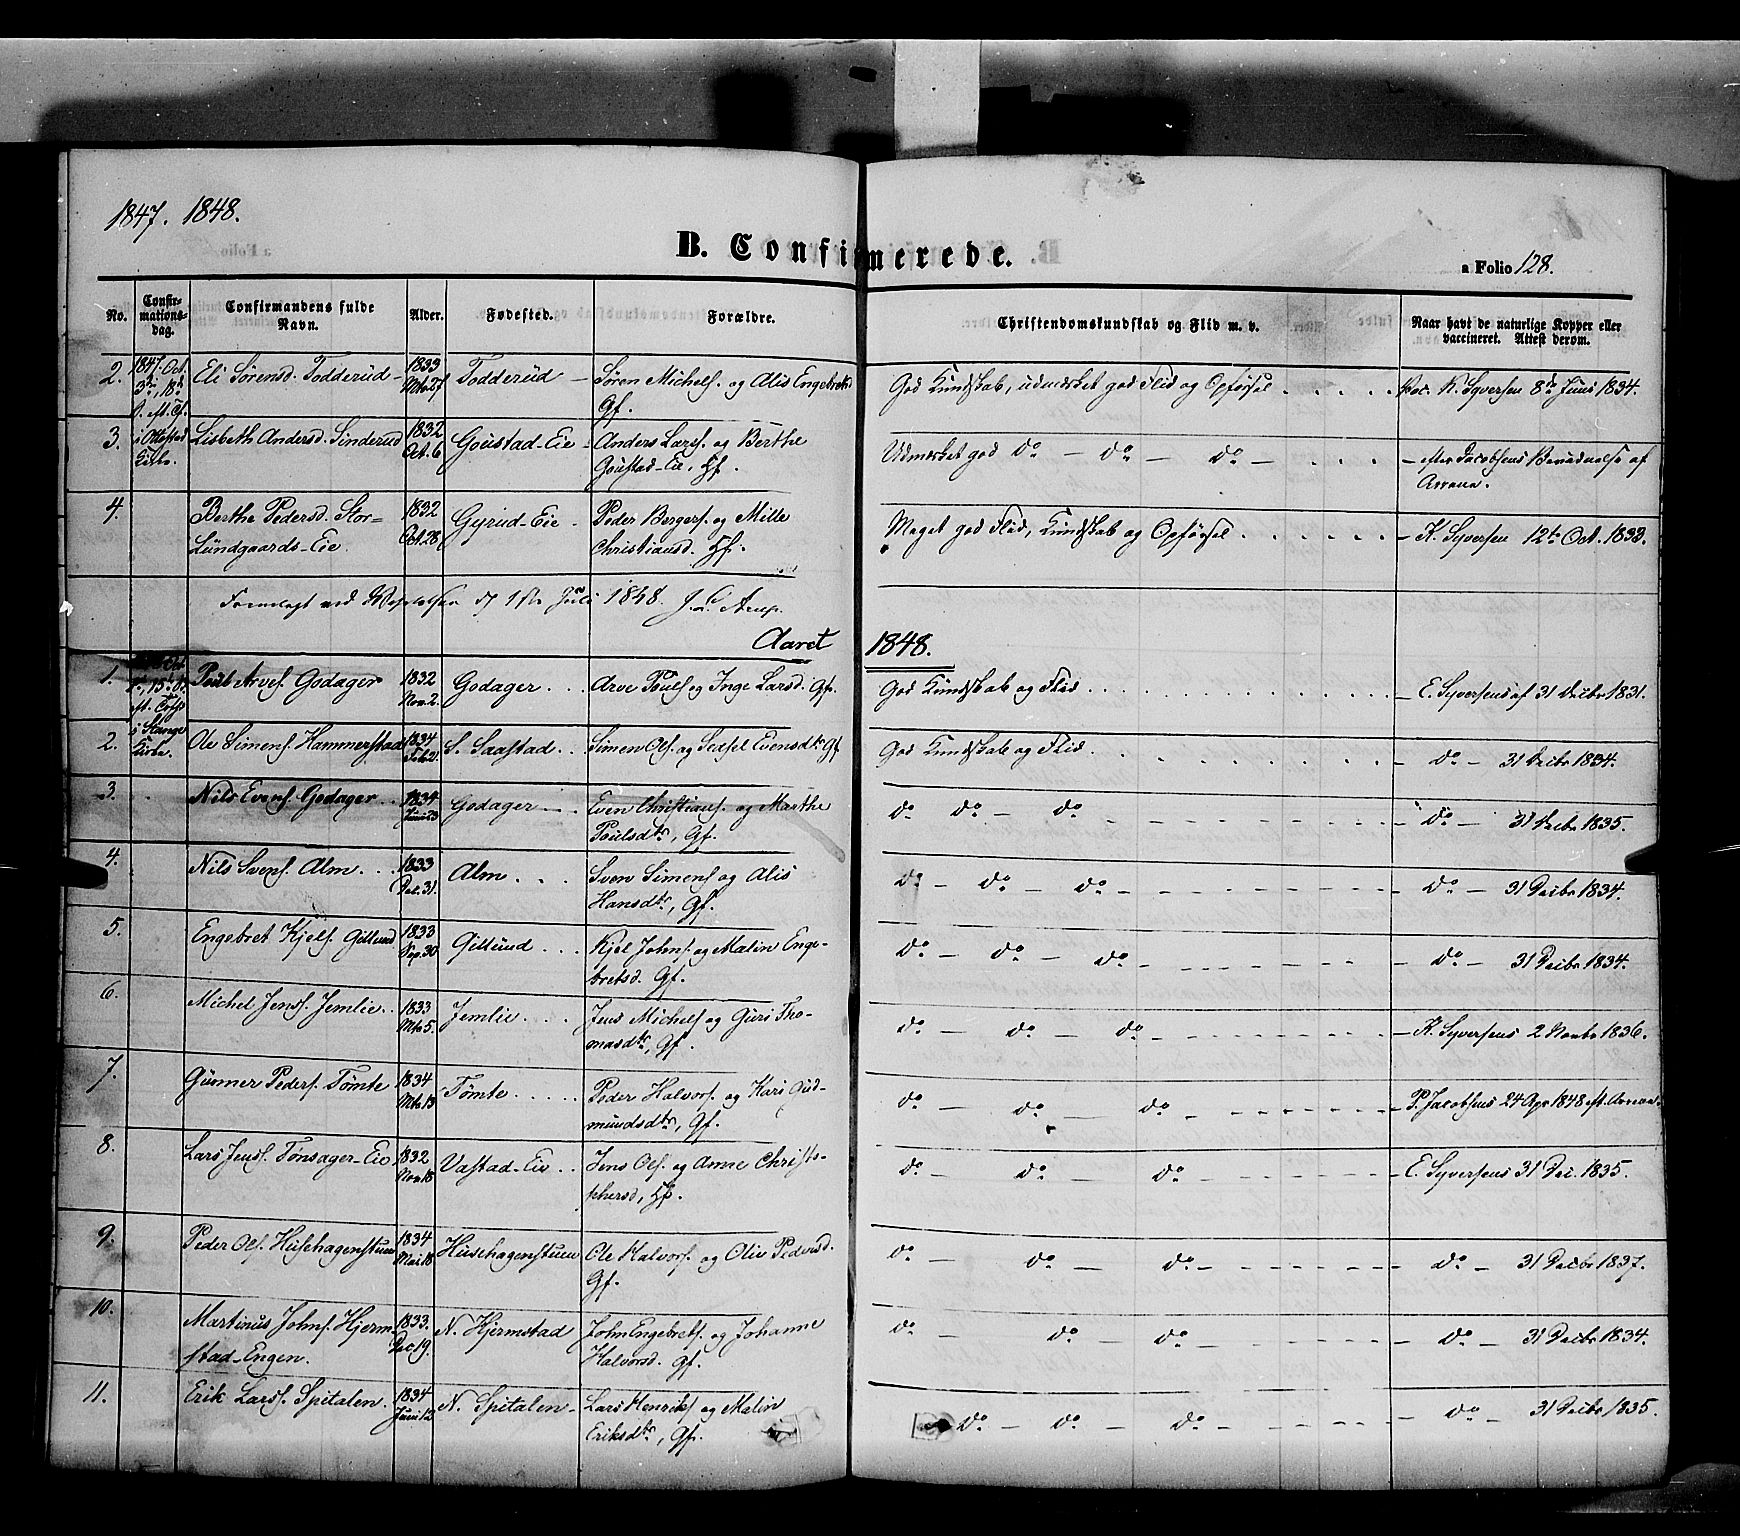 1847. 1848.
B. Confirmerede.
a Folio 128.
No. Confir-mations-dag. Confirmandens fulde Navn. Alder. Fødested. Forældre. Christendomskundskab og Flid m. v. Naar havt de naturlige Kopper eller vaccineret. Attest derom.
2. 1847. Oct. 3die, 18de S. eft. Tf. i Ottestad Kirke. Eli Sørensd. Todderud 1833 Mts 27 Todderud Søren Michels. og Alis Engebretsd Gf. God Kundskab, udmærket god Flid og Opførsel Vac. K. Syversen 8de Juni 1834.
3. Lisbeth Andersd. Sinderud 1832 Oct. 6 Goustad-Eie Anders Lars. og Berthe Goustad-Eie, Hf. Udmærket god do do do efter Jacobsens Benævnelse af Arrene.
4. Berthe Pedersd. Stor-Lundgaards-Eie. 1832 Oct. 28 Gyrud-Eie Peder Bergers. og Mille Christiansd. Hf. Meget god Flid, Kundskab og Opførsel K. Syversen 12te Oct. 1833.
Foreulagt ved Visitatsen d. 1ste Juli 1848. J. C. Arup.
Aaret 1848.
1. Oct. 1ste, 15de S. eft. Tf. i Stange Kirke. Poul Arves. Godager 1832 Nov. 2. Godager Arve Pouls og Inge Larsd. Gf. God Kundskab og Flid E. Syversens af 31 Decbr 1831.
2. Ole Simens. Hammerstad 1834 Feb. 2. S. Saastad Simen Ols. og Sidsel Evensdtr Gf God Kundskab og Flid do 31 Decbr 1834.
3. Nils Evens. Godager 1834 Juni 3 Godager Even Christians. og Marthe Poulsdtr, Gf. do do do do 31 Decbr 1835.
4. Nils Svens. Alm 1833 Dec. 31. Alm Sven Simens og Alis Hansdtr, Gf. do do do do 31 Decbr 1834.
5. Engebret Kjels. Gillund 1833 Sep. 30 Gillund Kjel Johns. og Malin Engebretsd. Gf. do do do do 31 Decbr 1834.
6. Michel Jens. Jemlie 1833 Mts 5. Jemlie Jens Michels og Guri Thomasdtr, Gf. do do do K. Syversens 2 Novbr 1836.
7. Gunner Peders. Tømte 1834 Mts 13 Tømte Peder Halvors. og Kari Gudmundsdtr, Gf. do do do P. Jacobsens 24 Apr 1848 eft. Arrene.
8. Lars Jens. Tønsager-Eie 1832 Nov 18 Vastad-Eie Jens Ols. og Anne Christophersd, Hf. do do do E. Syversens 31 Dec. 1835.
9. Peder Ols. Husehagenstuen 1834 Mai 18 Husehagenstuen Ole Halvors. og Oliv Pedersd. Gf. do do do do 31 Decbr 1837.
10. Martinus Johns. Hjermstad-Engen. 1833. Dec 19. N. Hjermstad John Engebrets. og Johanne Halvorsd. Gf. do do do do 31 Decbr 1834.
11. Erik Lars. Spitalen. 1834 Juni 12 N. Spitalen Lars Henriks. og Malin Eriksdtr, Gf. do do do do 31 Decbr 1835.